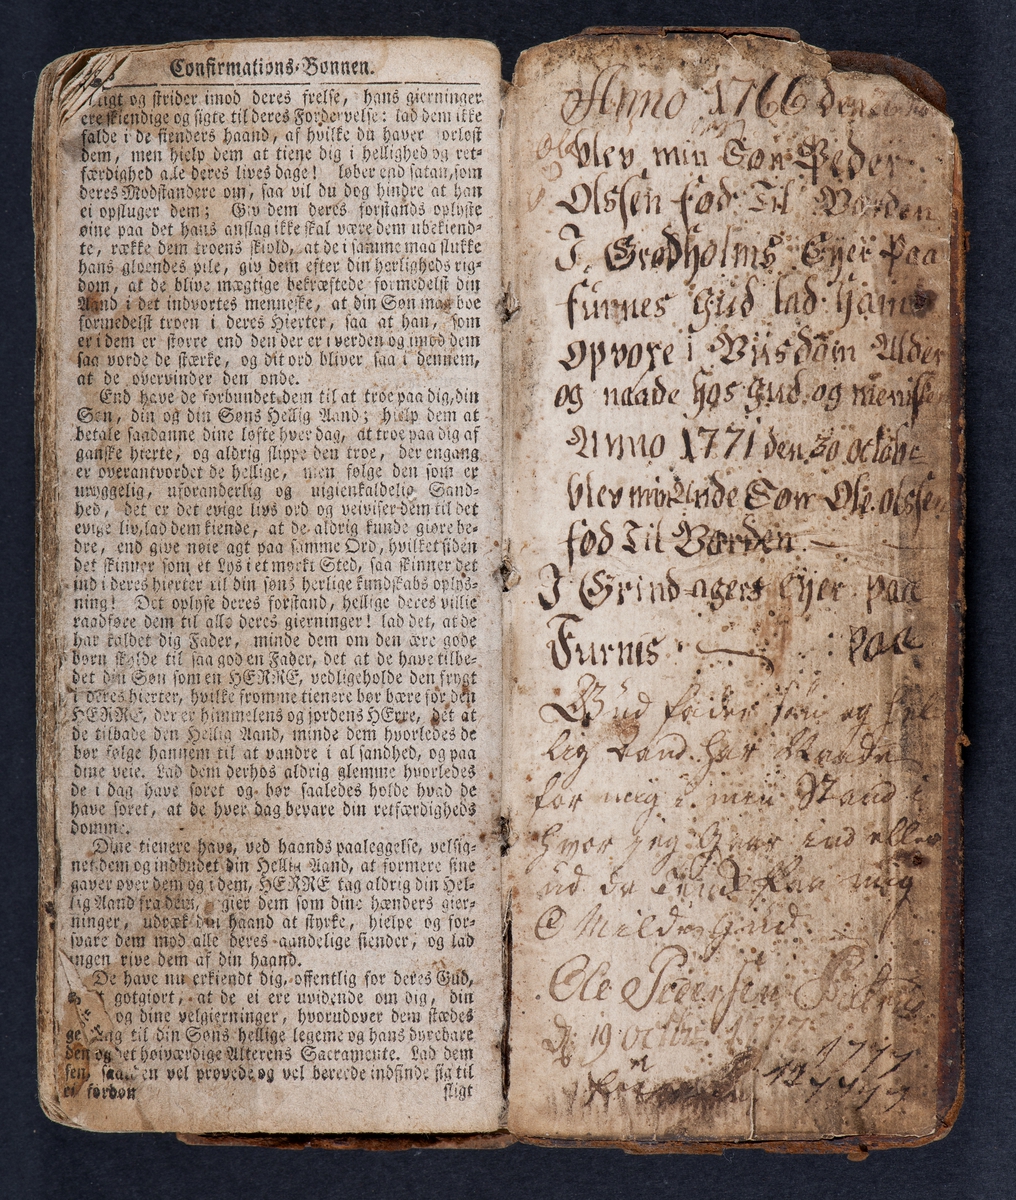 Confirmations-Bønnen.
ligt og strider imod deres frelse, hans gierninger
ere skiendige og sigte til deres Fordervelse: lad dem ikke
falde i de fienders haand, af hvilke du haver forløst
dem, men hielp dem at tiene dig i hellighed og ret-
færdighed alle deres lives dage! løber end satan, som
deres Modstandere om, saa vil du dog hindre at han
ei opsluger dem; Giv dem deres forstands oplyste
øine paa det hans anslag ikke skal være dem ubekiend-
te, række dem troens skiold, at de i samme maa slukke
hans gloendes pile, giv dem efter din herligheds rig-
dom, at de blive mægtige bekræftede formedelst din
Aand i det indvortes menneske, at din Søn maa boe
formedelst troen i deres Hierter, saa at han, som
er i dem er større end den der er i verden og imod dem
saa vorde de stærke, og dit ord bliver saa i dennem,
at de overvinder den onde.
End have de forbundet dem til at troe paa dig, din
Søn, din og din Søns Hellig Aand; hielp dem at
betale saadanne dine løfte hver dag, at troe paa dig af
ganske hierte, og aldrig slippe den troe, der engang
er overantvordet de hellige, men følge den som er
uryggelig, uforanderlig og uigienkaldelig Sand-
hed, det er det evige livs ord og veiviser dem til det
evige liv, lad dem kiende, at de aldrig kunde giøre be-
dre, end give nøie agt paa samme Ord, hvilket siden
det skinner som et Lys i et mørkt Sted, saa skinner det
ind i deres hierter til din søns herlige kundskabs oplys-
ning! Det oplyse deres forstand, hellige deres villie
raadføre dem til alle deres gierninger! lad det, at de
har kaldet dig Fader, minde dem om den ære gode
børn skylde til saa god en Fader, det at de have tilbe-
det din Søn som en HERRE, vedligeholde den frygt
i deres hierter, hvilke fromme tienere bør bære for den
HERRE, der er himmelens og jordens HErre, det at
de tilbade den Hellig Aand, minde dem hvorledes de
bør følge hannem til at vandre i al sandhed, og paa
dine veie. Lad dem derhos aldrig glemme hvorledes
de i dag have soret og bør saaledes holde hvad de
have soret, at de hver dag bevare din retfærdigheds
domme.
Dine tienere have, ved haands paaleggelse, velsig-
net dem og indbudet din Hellig Aand, at formere sine
gaver over dem og i dem, HERRE tag aldrig din Hel-
lig Aand fra dem, gier dem som dine hænders gier-
ninger, udræk din haand at styrke, hielpe og for-
svare dem mod alle deres aandelige fiender, og lad
ingen rive dem af din haand.
De have nu erkiendt dig offentlig for deres Gud,
gotgiort, at de ei ere uvidende om dig, din
og dine velgierninger, hvorudover dem stædes
gang til din Søns hellige legeme og hans dyrebare
den og det høiværdige Alterens Sacramente. Lad dem
sem saaden vel prøvede og vel berede indfinde sig til
et fordon
fligt
Anno 1766 den
blev min Søn Peder
Olssen fød Til Værden
I Grødholms Eyer Paa
furnes Gud lad ham
opvoxe i Viisdom Alder
og naade hos Gud og menisken
Anno 1771 den 30 octobe
blev min Ande Søn Ole olssen
fød Til Værden
I Grind-agers eyer paa
Furnis paa
Gud fader søn og Hel
lig aand har Vaade
for mig i min Stand i
hvor jeg Gaar ind eller
ud da Tænk paa mig
O Milde Gud.
Ole Pedersen
d 19 octbr 1777
1777
1777